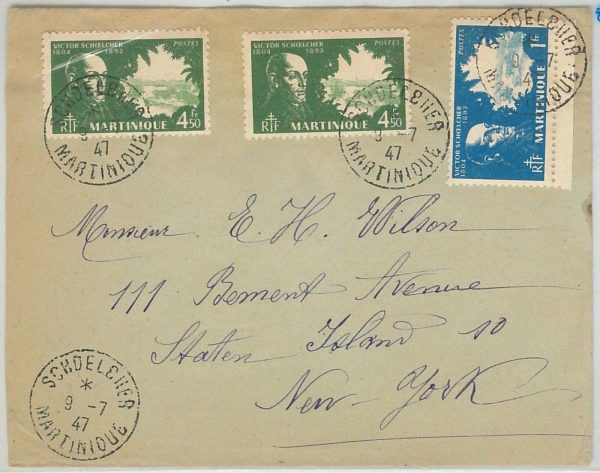 VICTOR SCHŒLCHER POSTES
1804 1893
RF MARTINIQUE 4F50
VICTOR SCHŒLCHER POSTES
1804 1893
RF MARTINIQUE 4F50
VICTOR SCHŒLCHER POSTES
1804 1893
RF MARTINIQUE 1F
SCHOELCHER
9 -7
47
MARTINIQUE
SCHOELCHER
9 -7
47
MARTINIQUE
SCHOELCHER
9 -7
4
MARTINIQUE
Monsieur E. H. Wilson
111 Bement Avenue
Staten Island 10
New-York
SCHOELCHER
*
9 -7
47
MARTINIQUE